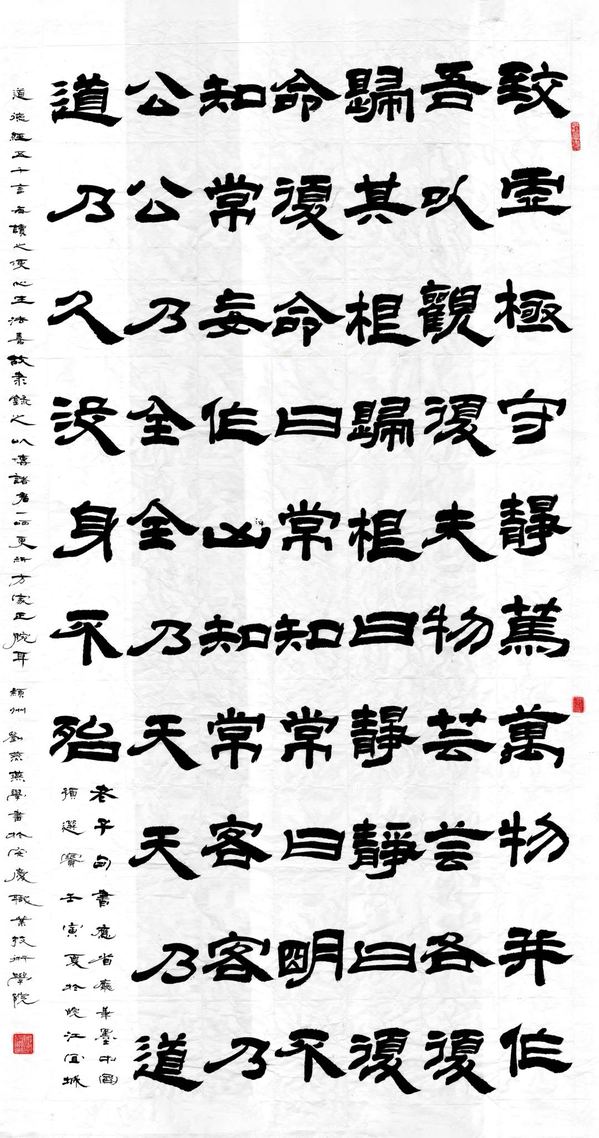 致虛極守靜篤萬物并作
吾以觀復夫物芸芸各復
歸其根歸根曰靜靜曰復
命復命曰常知常曰明不
知常妄作凶知常容容乃
公公乃全全乃天天乃道
道乃久没身不殆
老子句書應省墨
預選賽壬寅夏於皖江宜城
道德經五千言每讀之便心生法喜故錄之以博諸君一哂更祈方家正腕耳 穎州劉燕學書於安慶職業技術學院